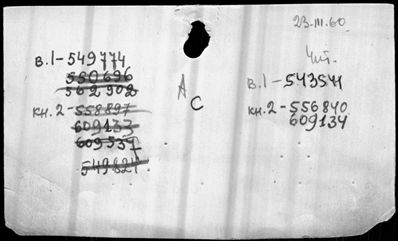 23.III.60
Чит.
в.1-549774
580696
562902
кн.2-558897
609133
609537
549821
А
С
в.1-543541
кн.2-556840
609134